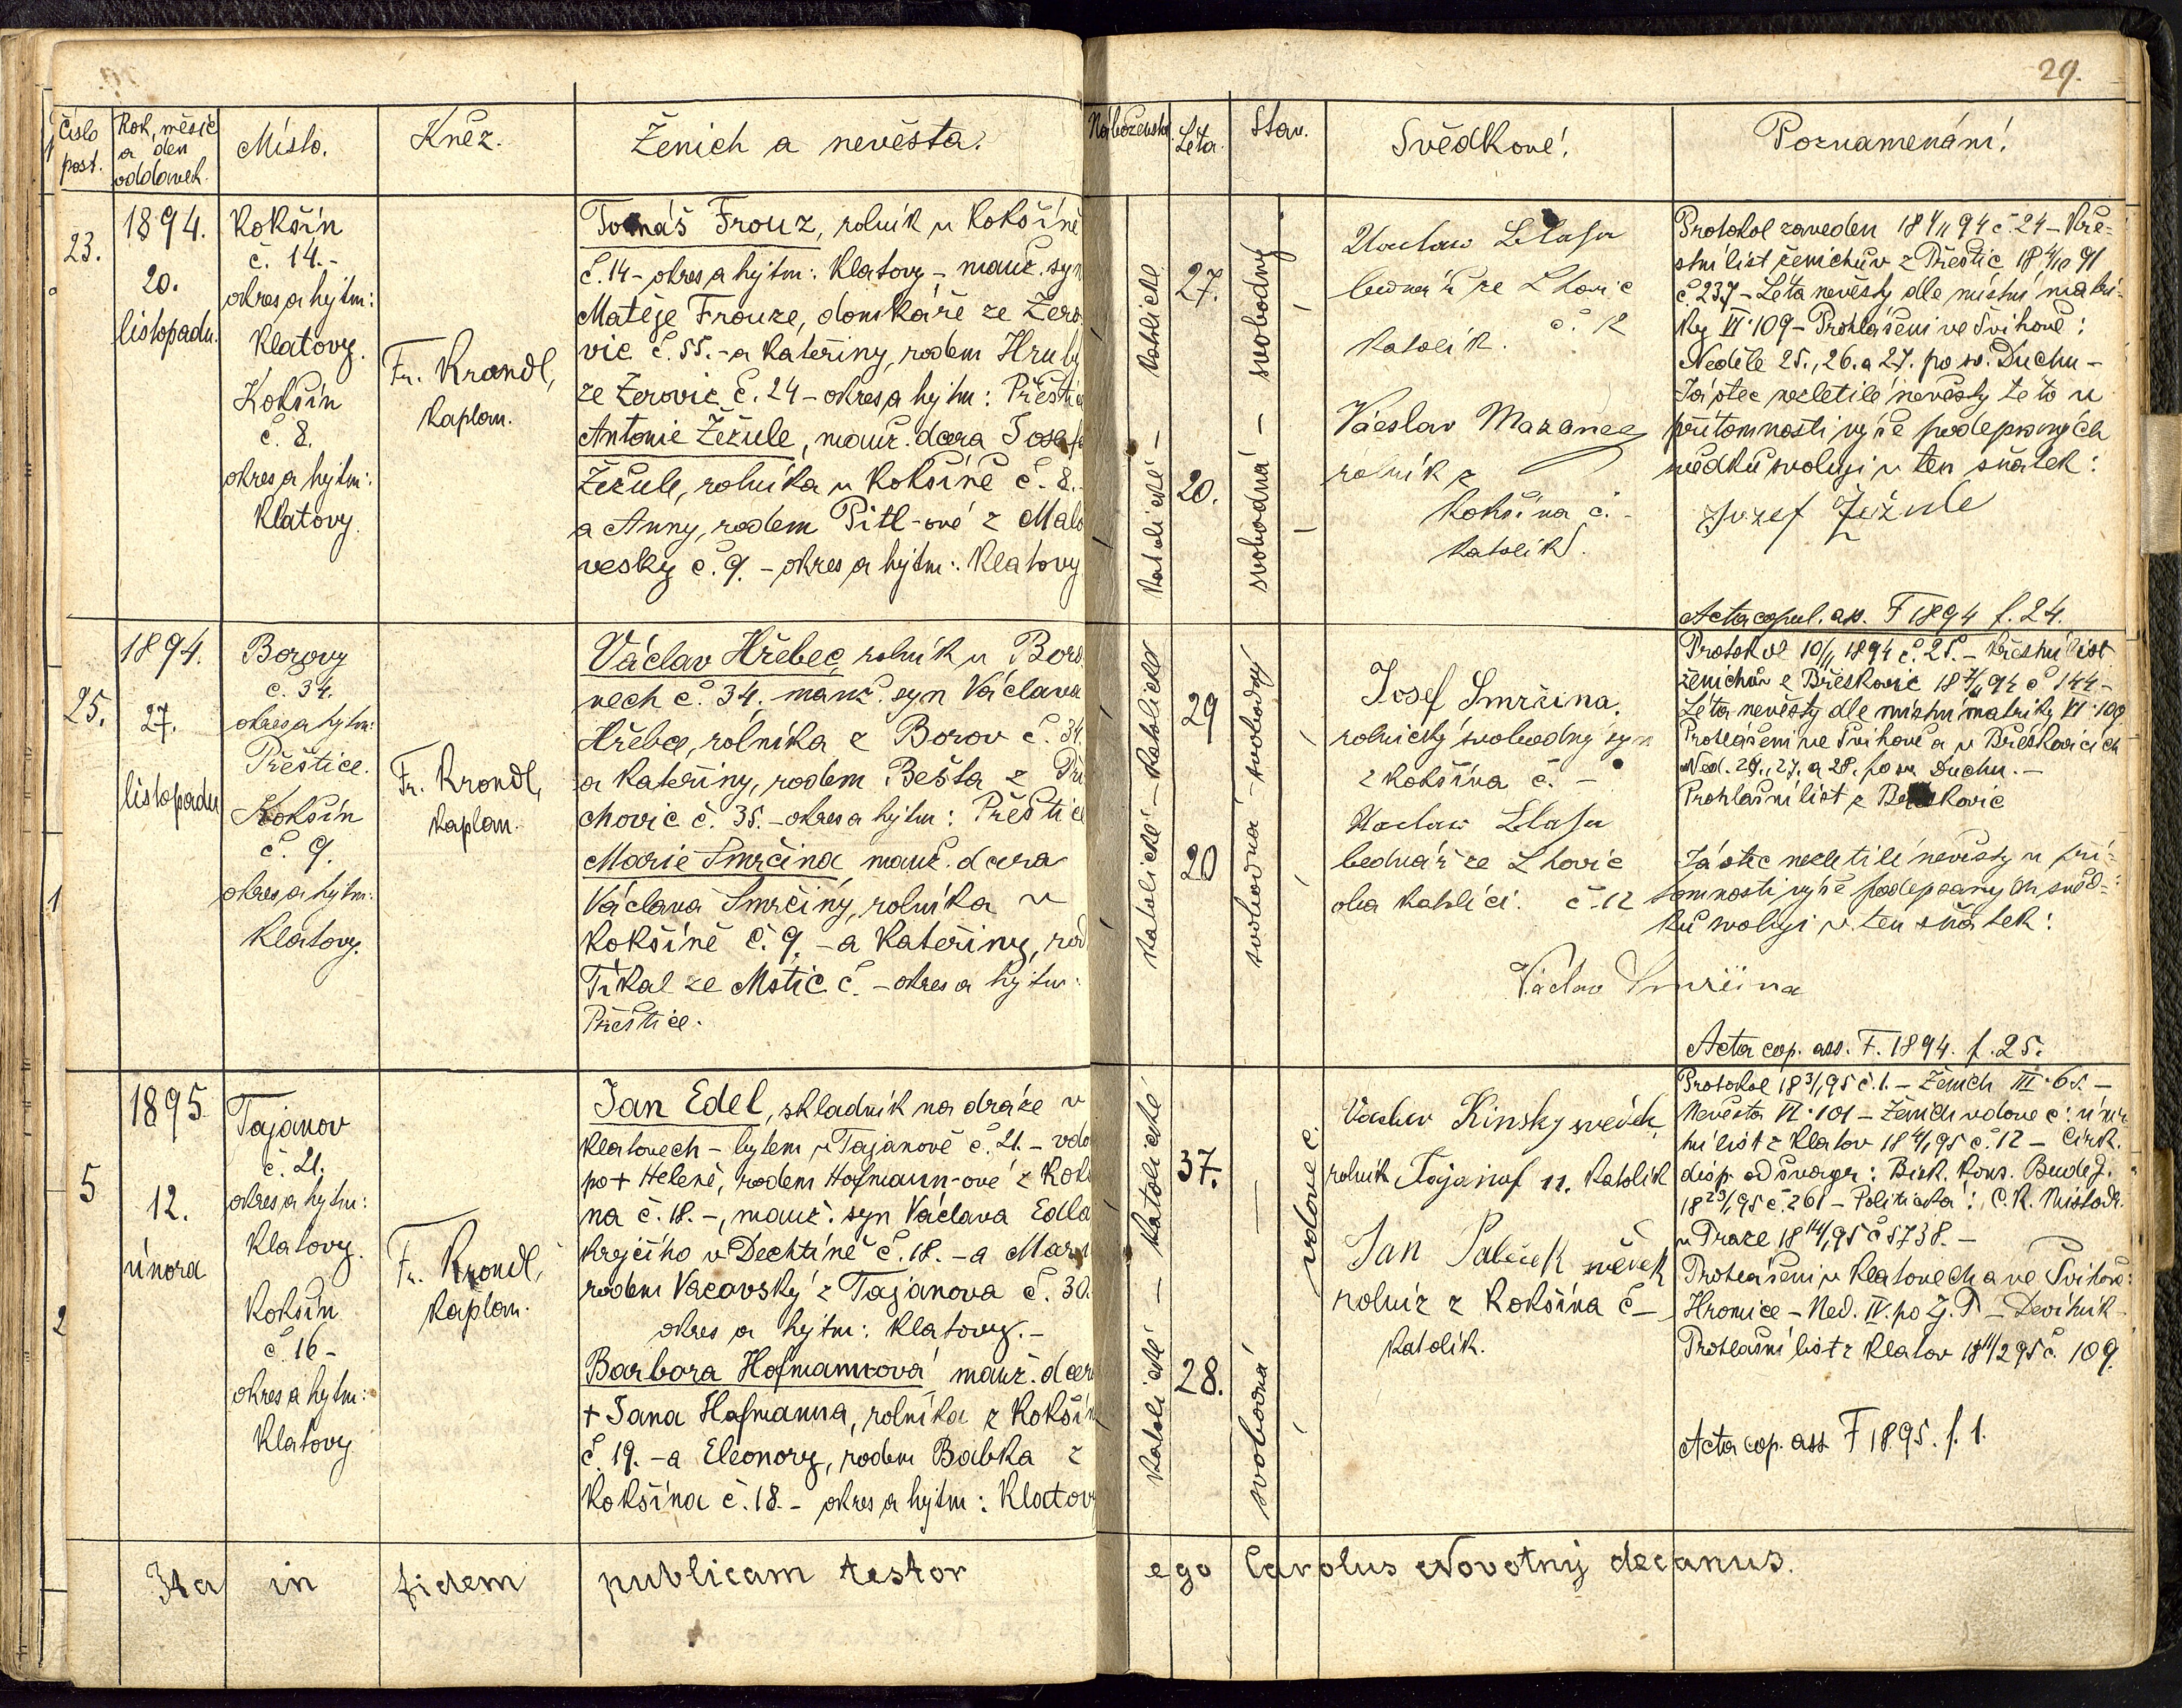 29.
Číslo
post.
Rok, měsíc
a den
oddavek.
Místo.
Kněz.
Ženich a nevěsta.
Náboženství.
Léta.
Stav.
Svědkové.
Poznamenání.
23.
1894.
20.
listopadu.
Kokšín
č. 14.-
okres a hejtm:
Klatovy.
Kokšín
č. 8.
okres a hejtm:
Klatovy.
Fr. Krondl,
kaplan.
Tomáš Frouz, rolník v Kokšíně
č. 14 - okres a hejtm: Klatovy - manž. syn
Matěje Frouze, domkáře ze Žero
vic č. 55. - a Kateřiny, rodem Hrubý
ze Žerovic č. 24 - okres a hejtm: Přeštic
Antonie Žežule, manž. dcera Josefa
Žežule, rolníka v Kokšíně č. 8.
a Anny, rodem Pitl-ové z Malé
vesky č. 9. - okres a hejtm: Klatovy
katolické — katolické
27.
20.
svobodná — svobodný
Václav
bednář ze Lhovic
č. 12
katolík.
Václav Mazanec
rolník z
Kokšína č. -
katolík.
Protokol zaveden 18 4/11 94 č. 24 - Kře-
stní list ženichův z Přeštic 18 4/10 91
č. 237 - Léta nevěsty dle místní matri-
ky VI. 109 - Prohlášení ve Švihově:
Neděle 25., 26. a 27. po sv. Duchu -
Já otec nezletilé nevěsty této v
přítomnosti výše podepsaných
svědků svoluji v ten sňatek:
Jozef Žežule
Acta copul. ass. F 1894 f. 24.
25.
1894.
27.
listopadu
Borovy
č. 34.
okres a hejtm:
Přeštice.
Kokšín
č. 9.
okres a hejtm:
Klatovy.
Fr. Krondl,
kaplan.
Václav Hřebec, rolník v Boro
vech č. 34. manž. syn Václava
Hřebce, rolníka z Borov č. 34.
a Kateřiny, rodem Bešta z Při
chovic č. 35. - okres a hejtm: Přeštice
Marie Smrčina, manž. dcera
Václava Smrčiny, rolníka v
Kokšíně č. 9. - a Kateřiny, rod
Tikal ze Mstic č. - okres a hejtm:
Přeštice.
katolické — katolické
29
20
svobodná - svobodný
Josef Smrčina,
rolnický svobodný syn
z Kokšína č. -
Václav
bednář ze Lhovic
oba katolíci. č. 12
Protokol 10/11 1894 č. 25. - Křestní list
ženichův z Přeskovic 18 7/11 94 č. 144 -
Léta nevěsty dle místní matriky VI. 109
Prohlášení ve Švihově a v Břeskovicích
Ned. 26., 27. a 28. po sv. Duchu. -
Prohlášní list z
Já otec nezletilé nevěsty v pří-
tomnosti výše podepsaných svěd-
ků svoluji v ten sňatek:
Václav Smrčina
Acta cop. ass. F. 1894. f. 25.
5
1895
12.
února
Tajanov
č. 21.
okres a hejtm:
Klatovy.
Kokšín
č. 16 -
okres a hejtm:
Klatovy
Fr. Krondl,
kaplan.
Jan Edel, skladník na dráze v
Klatovech - bytem v Tajanově č. 21. - vdo
po + Heleně, rodem Hofmann-ové z Kokš
na č. 18. -, manž. syn Václava Edla
krejčího v Dechtíně č. 18. - a Mar
rodem Vacovský z Tajanova č. 30.
okres a hejtm: Klatovy. -
Barbora Hofmannová manž. dcer
+ Jana Hofmanna, rolníka z Kokšín
č. 19. - a Eleonory, rodem Babka z
Kokšína č. 18. - okres a hejtm: Klatov
katolické — katolické
37.
28.
svobodná — vdovec.
Václav Kinský svědek,
rolník Tajanof 11. katolík
Jan Paleček svědek
rolník z Kokšína č -
katolík.
Protokol 18 3/1 95 č. 1. - Ženich III. 65. -
Nevěsta VI. 101 - Ženich vdovec: úmr
tní list z Klatov 18 4/1 95 č. 12 - Církv.
disp. od švagr: Bisk. Kons. Budějc.
18 23/1 95 č. 261 - Politická: C. K. Místodr.
v Praze 18 14/1 95 č 5738. -
Prohlášení v Klatovech a ve Švihově:
Hromice - Ned. IV. po Zj. P - Devítník -
Prohlášní list z Klatov 18 11/2 95 č. 109
Acta cop. ass. F 1895. f. 1.
Ita in fidem publicam testor ego Carolus Novotný decanus.